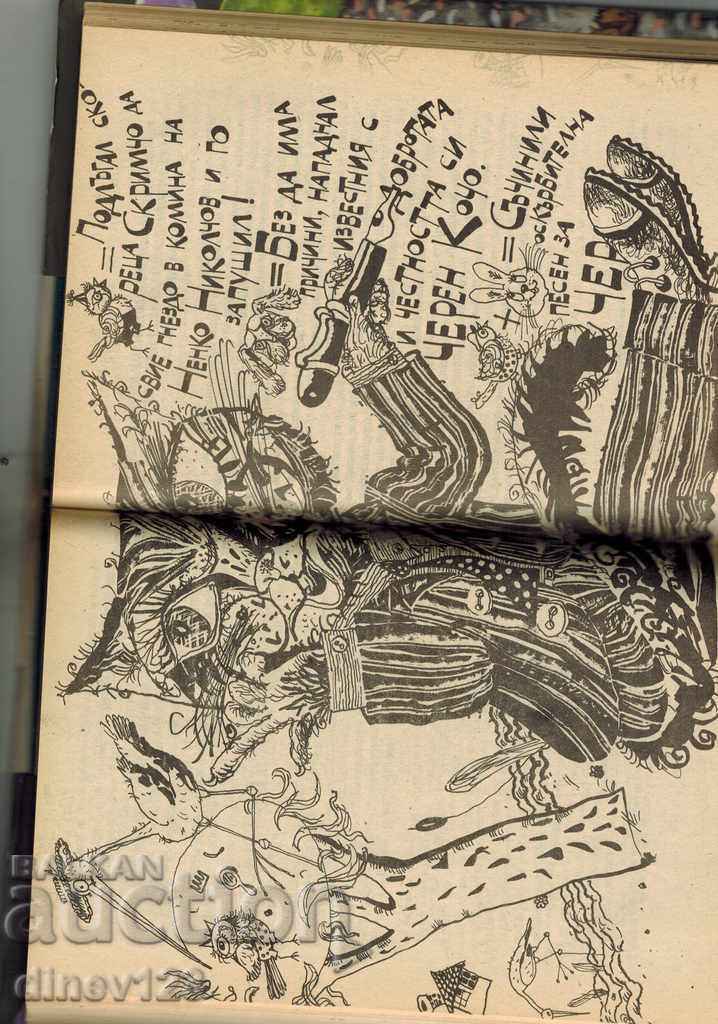 = Подлъгал ско-
реца Скримчо да
свие гнездо в комина на
Ненко Николчов и го
запушил!
= Без да има
причини, нападнал
известния с
добротата
и честността си
Черен Кочо.
+ = Съчинили
оскърбителна
песен за
Чер
BALKAN
auction
dinev128